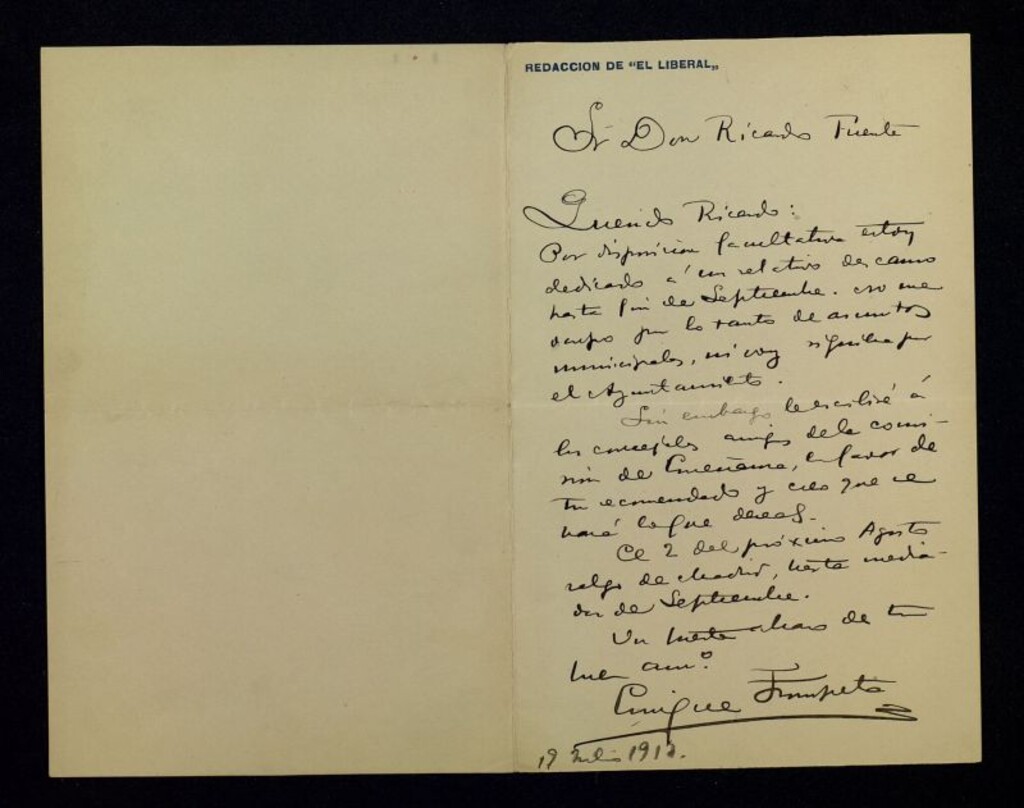 REDACCION DE "EL LIBERAL„
Sr Don Ricardo Fuente
Querido Ricardo:
Por disposicion facultativa estoy
dedicado á un relativo descanso
hasta fin de Septiembre. No me
ocupo por lo tanto de asuntos
municipales, ni voy siquiera por
el Ayuntamiento.
Sin embargo le escribiré á
los concejales amigos de la comi-
sión de Enseñanza, en favor de
tu recomendado y creo que se
hará lo que deseas.
El 2 del próximo Agosto
salgo de Madrid, hasta media-
dos de Septiembre.
Un fuerte abrazo de tu
buen am.º
Enrique Trompeta
19 Julio 1912.